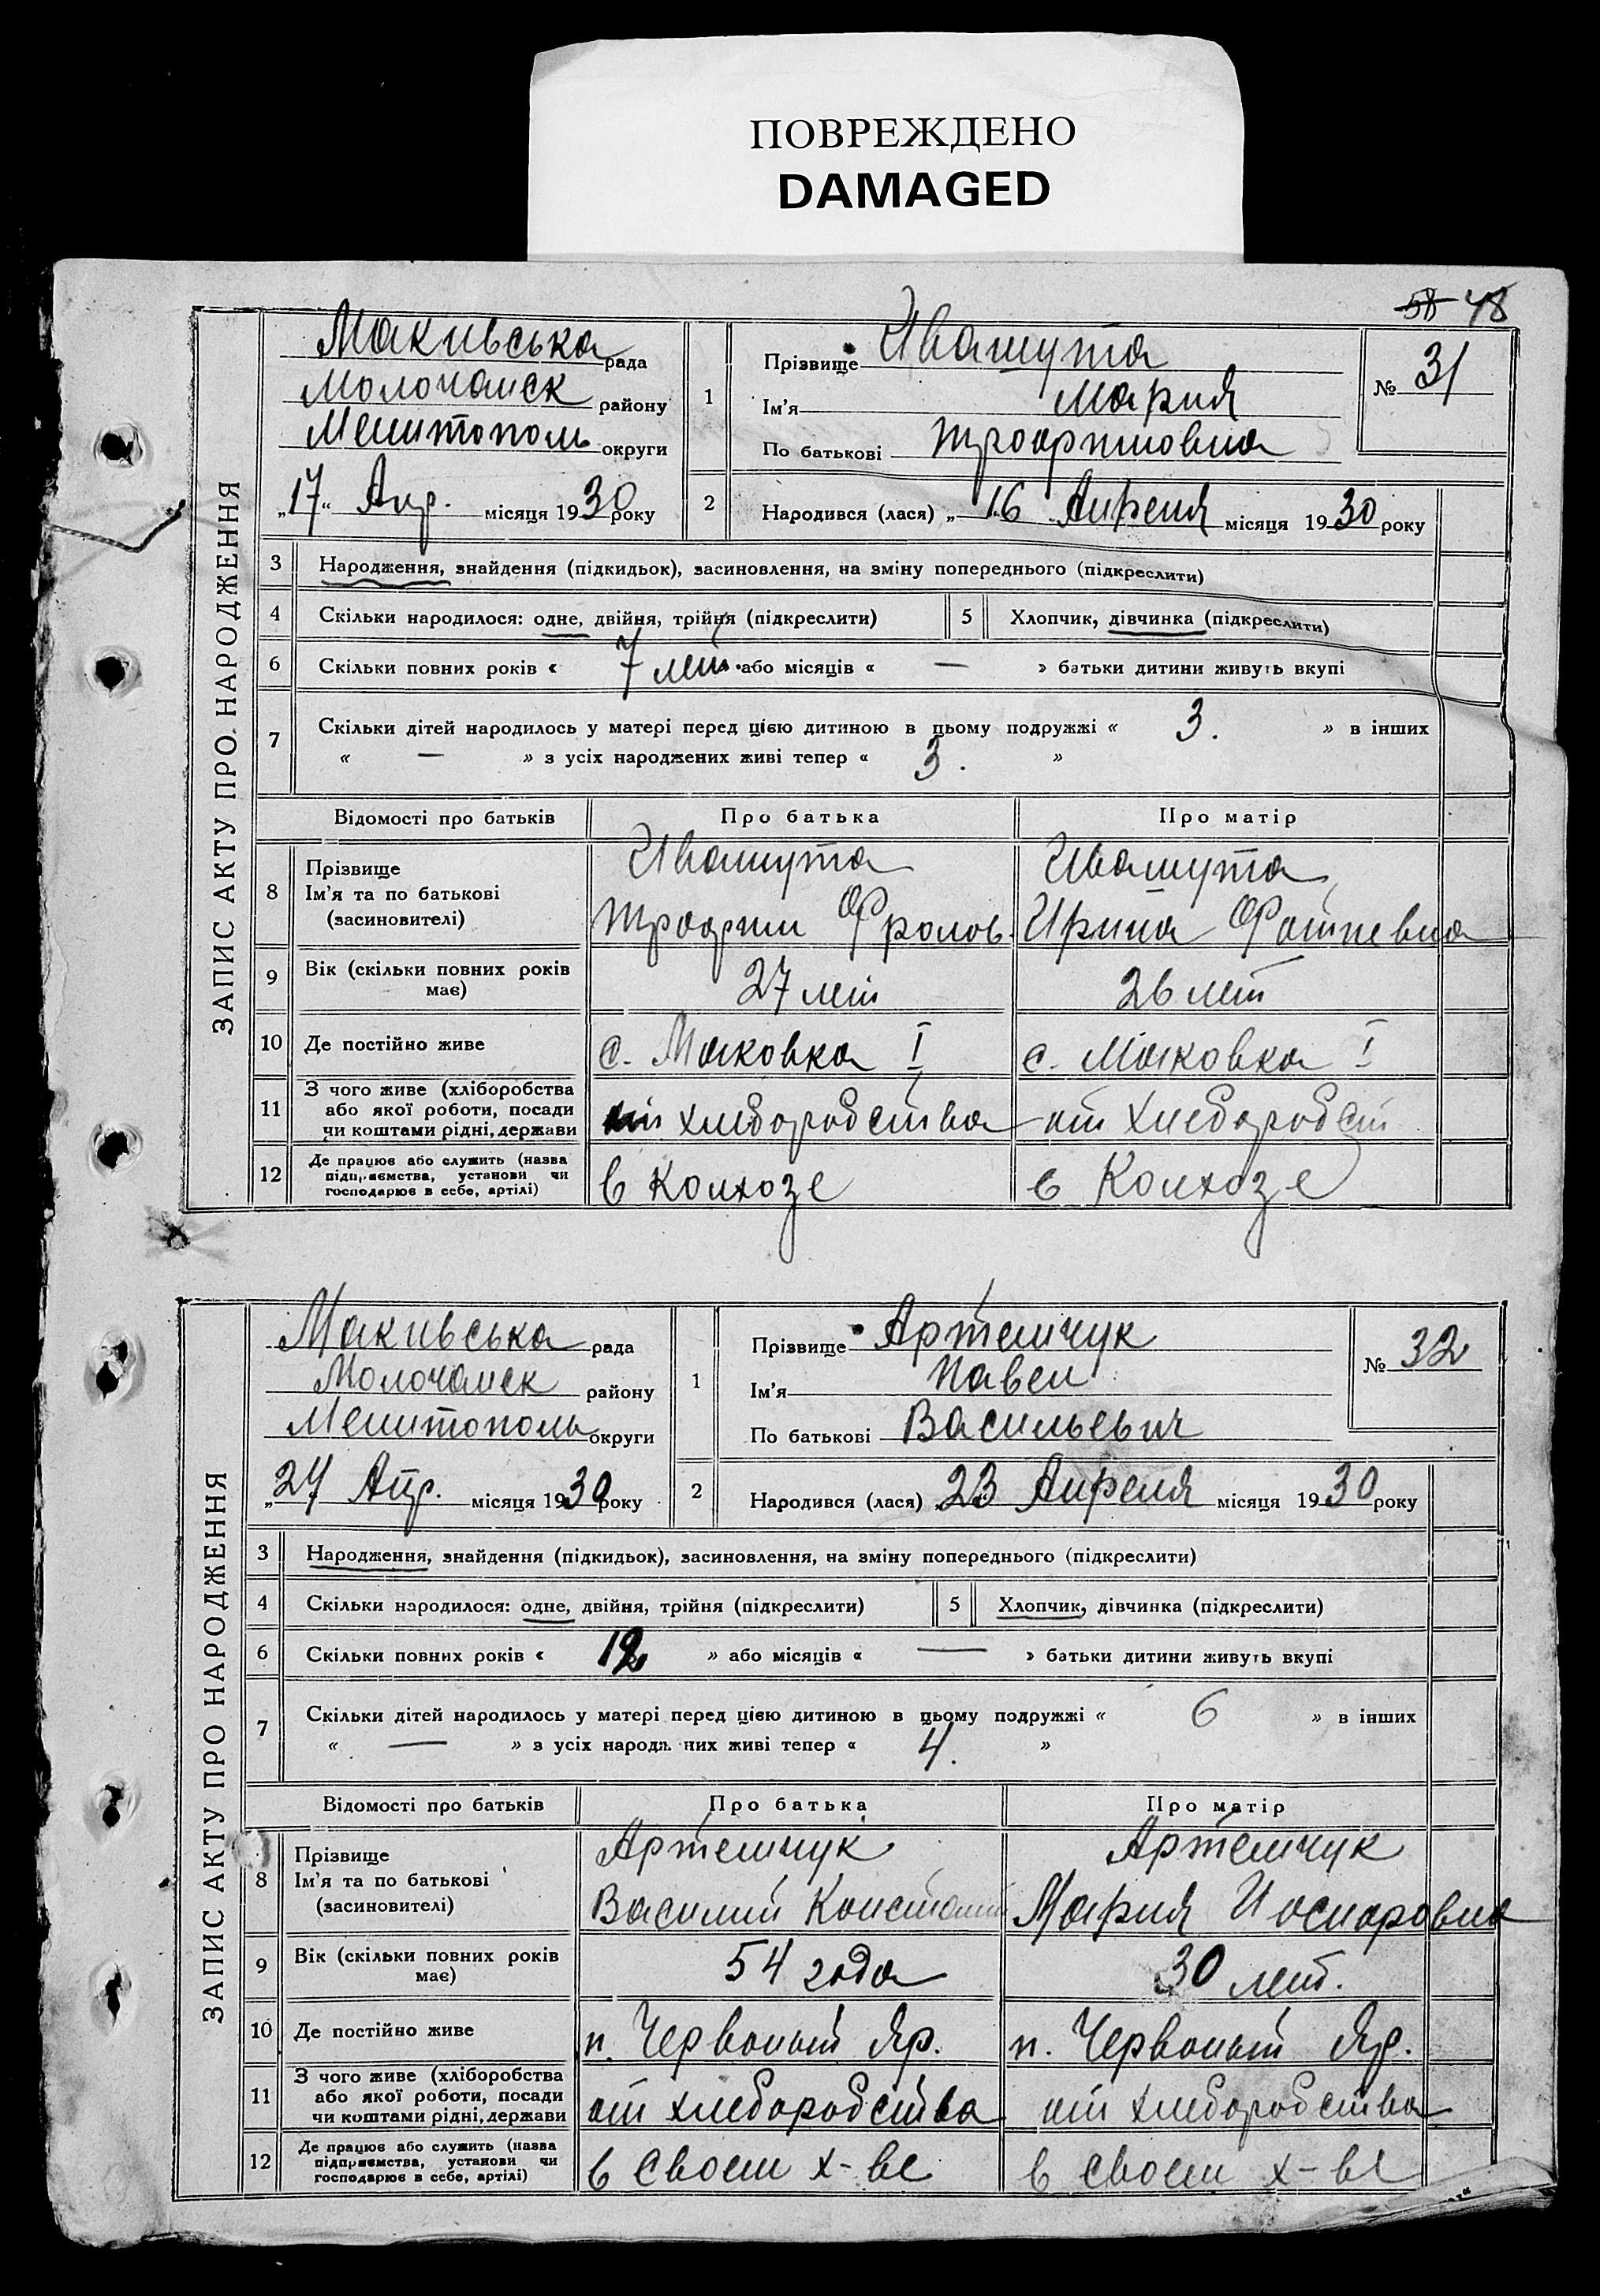 ПОВРЕЖДЕНО
DAMAGED
58 48
ЗАПИС АКТУ ПРО НАРОДЖЕННЯ
Макивська рада
Молочанск району
Мелитополь округи
„17“ Апр. місяця 1930 року
1
Прізвище Ивашута
Ім'я Мария
По батькові
№ 31
2
Народився (лася) „16 Апреля місяця 1930 року
3 Народження, знайдення (підкидьок), засиновлення, на зміну попереднього (підкреслити)
4 Скільки народилося: одне, двійня, трійня (підкреслити) 5 Хлопчик, дівчинка (підкреслити)
6 Скільки повних років « 7 лет або місяців « — » батьки дитини живуть вкупі
7 Скільки дітей народилось у матері перед цією дитиною в цьому подружжі « 3. » в інших
« — » з усіх народжених живі тепер « 3. »
Відомості про батьків Про батька Про матір
8 Прізвище Ім'я та по батькові (засиновителі)
Ивашута Ивашута
Фролов. Ирина
9 Вік (скільки повних років має) 27 лет 26 лет
10 Де постійно живе с. Маковка I с. Маковка I
11 З чого живе (хліборобства або якої роботи, посади чи коштами рідні, держави от хлеборобства от хлеборобст
12 Де працює або служить (назва підприємства, установи чи господарює в себе, артілі) в Колхозе в Колхозе
ЗАПИС АКТУ ПРО НАРОДЖЕННЯ
Макивська рада
Молочанск району
Мелитополь округи
„24 Апр. місяця 1930 року
1
Прізвище Артемчук
Ім'я Павел
По батькові Васильевич
№ 32
2
Народився (лася) 23 Апреля місяця 1930 року
3 Народження, знайдення (підкидьок), засиновлення, на зміну попереднього (підкреслити)
4 Скільки народилося: одне, двійня, трійня (підкреслити) 5 Хлопчик, дівчинка (підкреслити)
6 Скільки повних років « 12 » або місяців « — » батьки дитини живуть вкупі
7 Скільки дітей народилось у матері перед цією дитиною в цьому подружжі « 6 » в інших
« — » з усіх народж них живі тепер « 4. »
Відомості про батьків Про батька Про матір
8 Прізвище Ім'я та по батькові (засиновителі)
Артемчук Артемчук
Василий Констант Мария
9 Вік (скільки повних років має) 54 года 30 лет.
10 Де постійно живе п. Червоный Яр. п. Червоный Яр.
11 З чого живе (хліборобства або якої роботи, посади чи коштами рідні, держави от хлеборобства от хлеборобства
12 Де працює або служить (назва підприємства, установи чи господарює в себе, артілі) в своем х-ве в своем х-ве